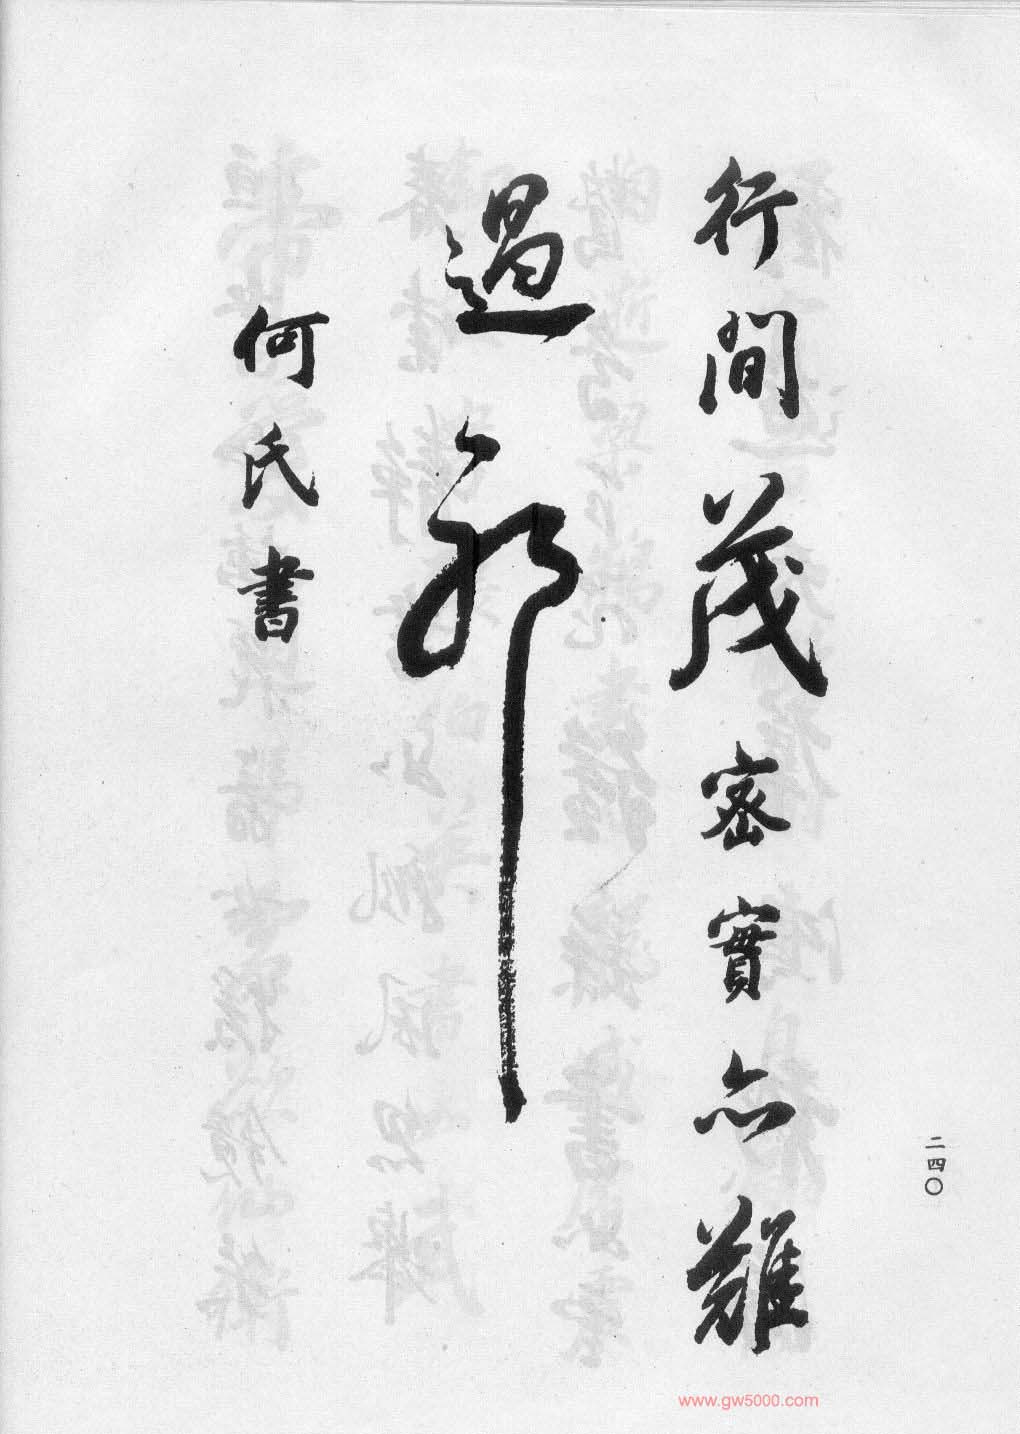 行間茂密實亦難
過耶
何氏書
二四〇
www.gw5000.com